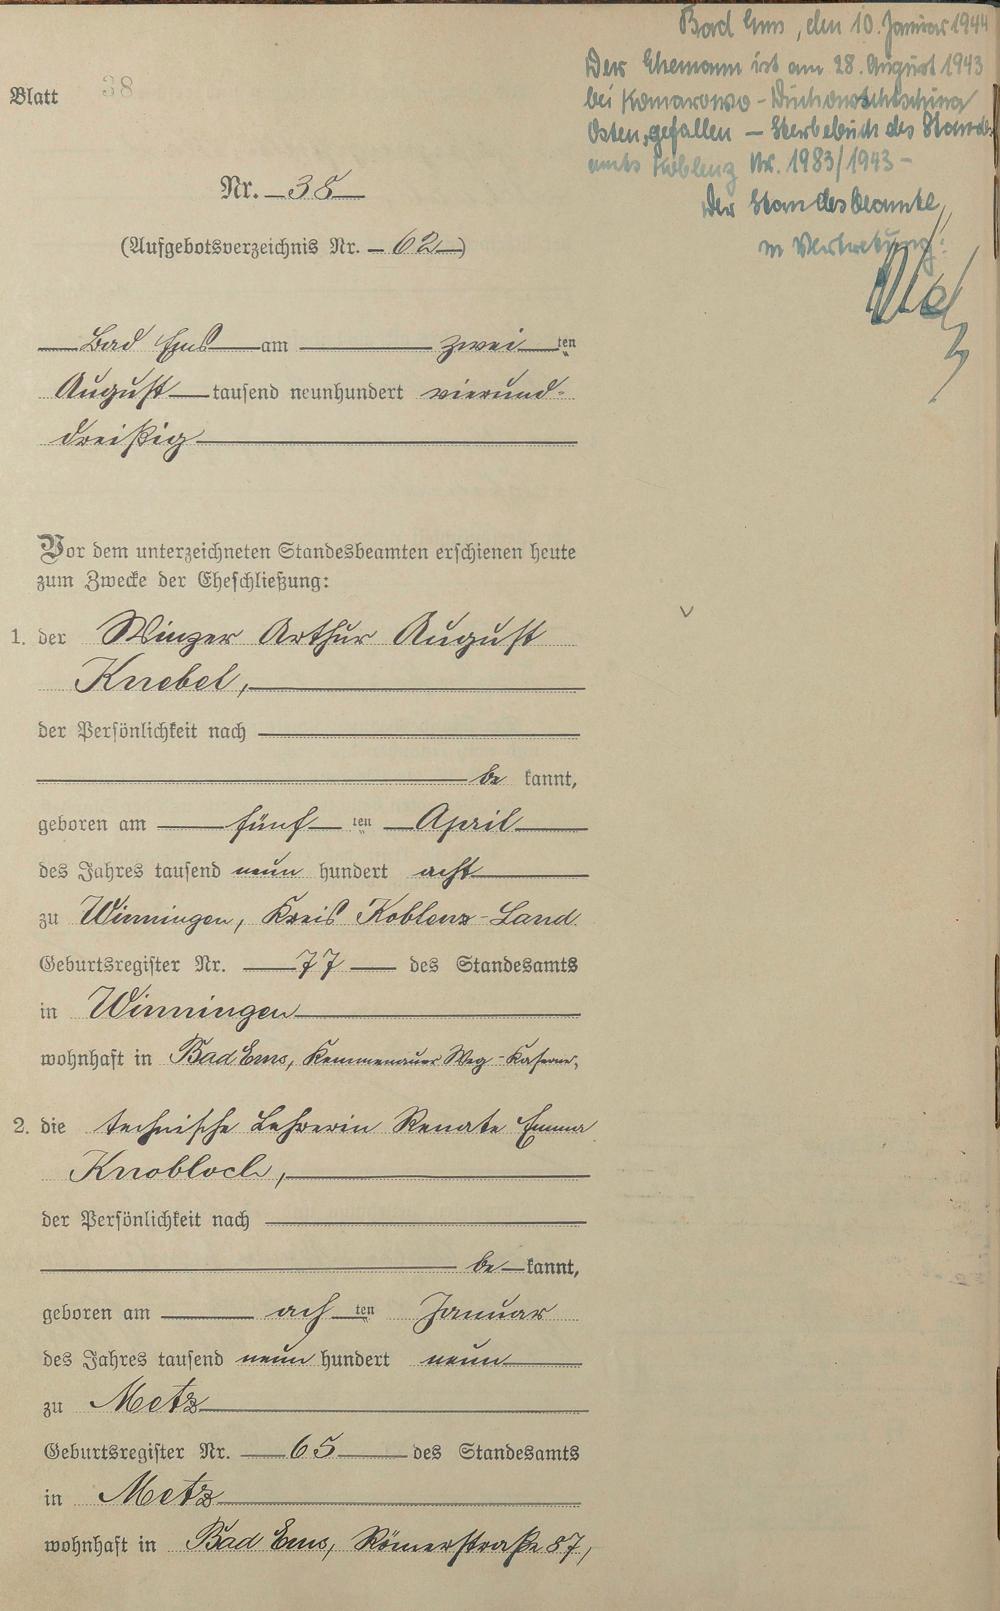 Bad Ems, den 10. Januar 1944
Der Ehemann ist am 28. August 1943
bei Komarowo-
Osten, gefallen – Sterbebuch des Stands-
amts Koblenz Nr. 1983/1943 –
Der Standesbeamte,
in Vertretung:
Blatt 38
Nr. 38
(Aufgebotsverzeichnis Nr. 62)
Bad Ems am zwei ten
August tausend neunhundert vierund-
dreißig
Vor dem unterzeichneten Standesbeamten erschienen heute
zum Zwecke der Eheschließung:
1. der Winzer Arthur August
Knebel,
der Persönlichkeit nach
be kannt,
geboren am fünf ten April
des Jahres tausend neun hundert acht
zu Winningen, Kreis Koblenz-Land
Geburtsregister Nr. 77 des Standesamts
in Winningen
wohnhaft in Bad Ems, Kemmenauer Weg-Kaserne,
2. die technische Lehrerin Renate Emma
Knobloch,
der Persönlichkeit nach
be kannt,
geboren am ach ten Januar
des Jahres tausend neun hundert neun
zu Metz
Geburtsregister Nr. 65 des Standesamts
in Metz
wohnhaft in Bad Ems, Römerstraße 87,